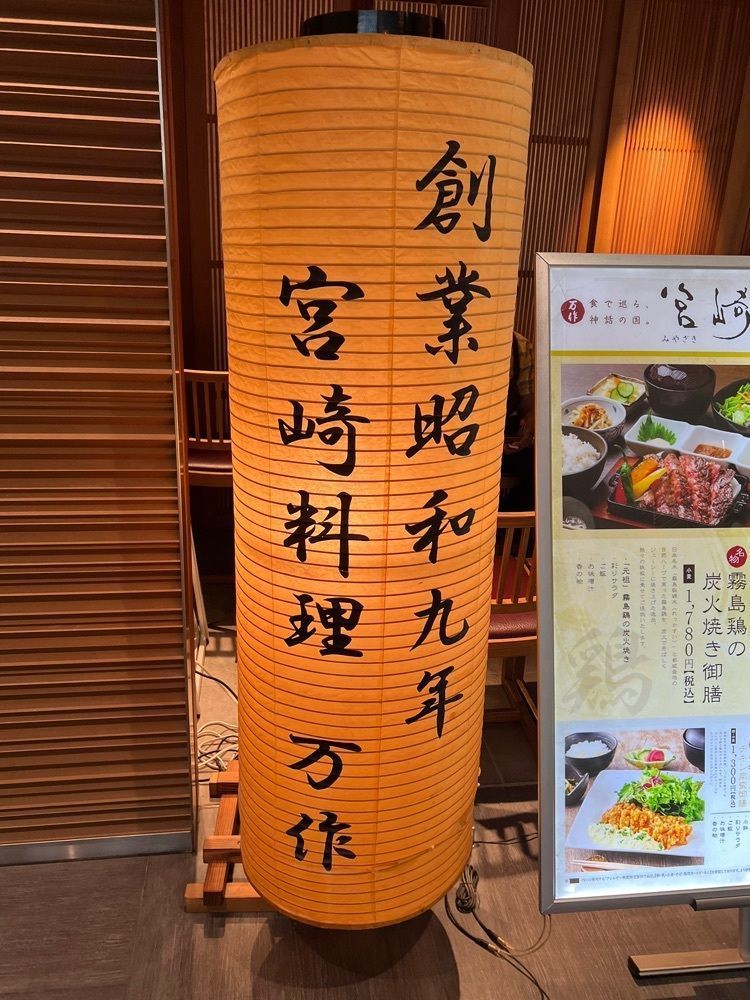 創業昭和九年
宮崎料理 万作
万作
食で巡る、
神話の国。
宮崎
みやざき
名物
霧島鶏の
炭火焼き御膳
1,780円【税込】
「元祖」霧島鶏の炭火焼き
彩りサラダ
ご飯
お味噌汁
香の物
鶏
1,300円【税込】
小鉢
彩りサラダ
ご飯
お味噌汁
香の物